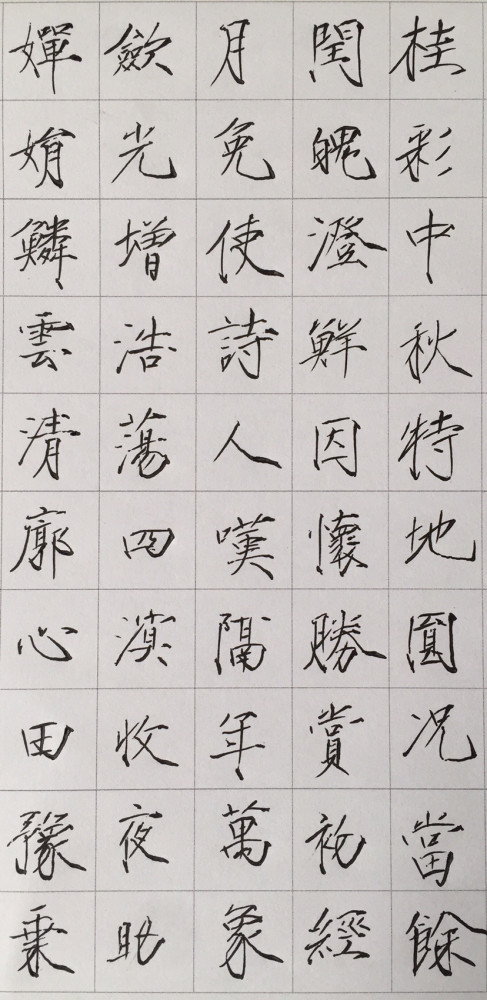 桂彩中秋特地圓况當餘
閏魄澄鮮因懷勝賞初經
月免使詩人嘆隔年萬象
歛光增浩蕩四溟收夜助
嬋娟鱗雲清廓心田豫乗